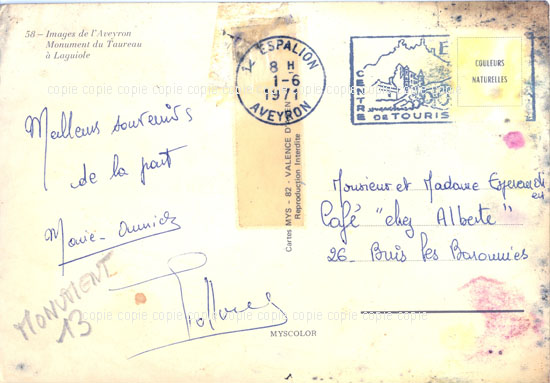 58 – Images de l'Aveyron
Monument du Taureau
à Laguiole
12 ESPALION
8 H
1-6
1971
AVEYRON
CENTRE DE TOURIS
COULEURS
NATURELLES
copie copie copie copie copie copie copie copie copie copie copie copie
Meilleurs souvenirs
de la part
Marie-Annick
MONUMENT
13
Cartes MYS - 82 - VALENCE D'AGEN
Reproduction Interdite
Monsieur et Madame
Café "chez Alberte"
26 - Buis les Baronnies
MYSCOLOR